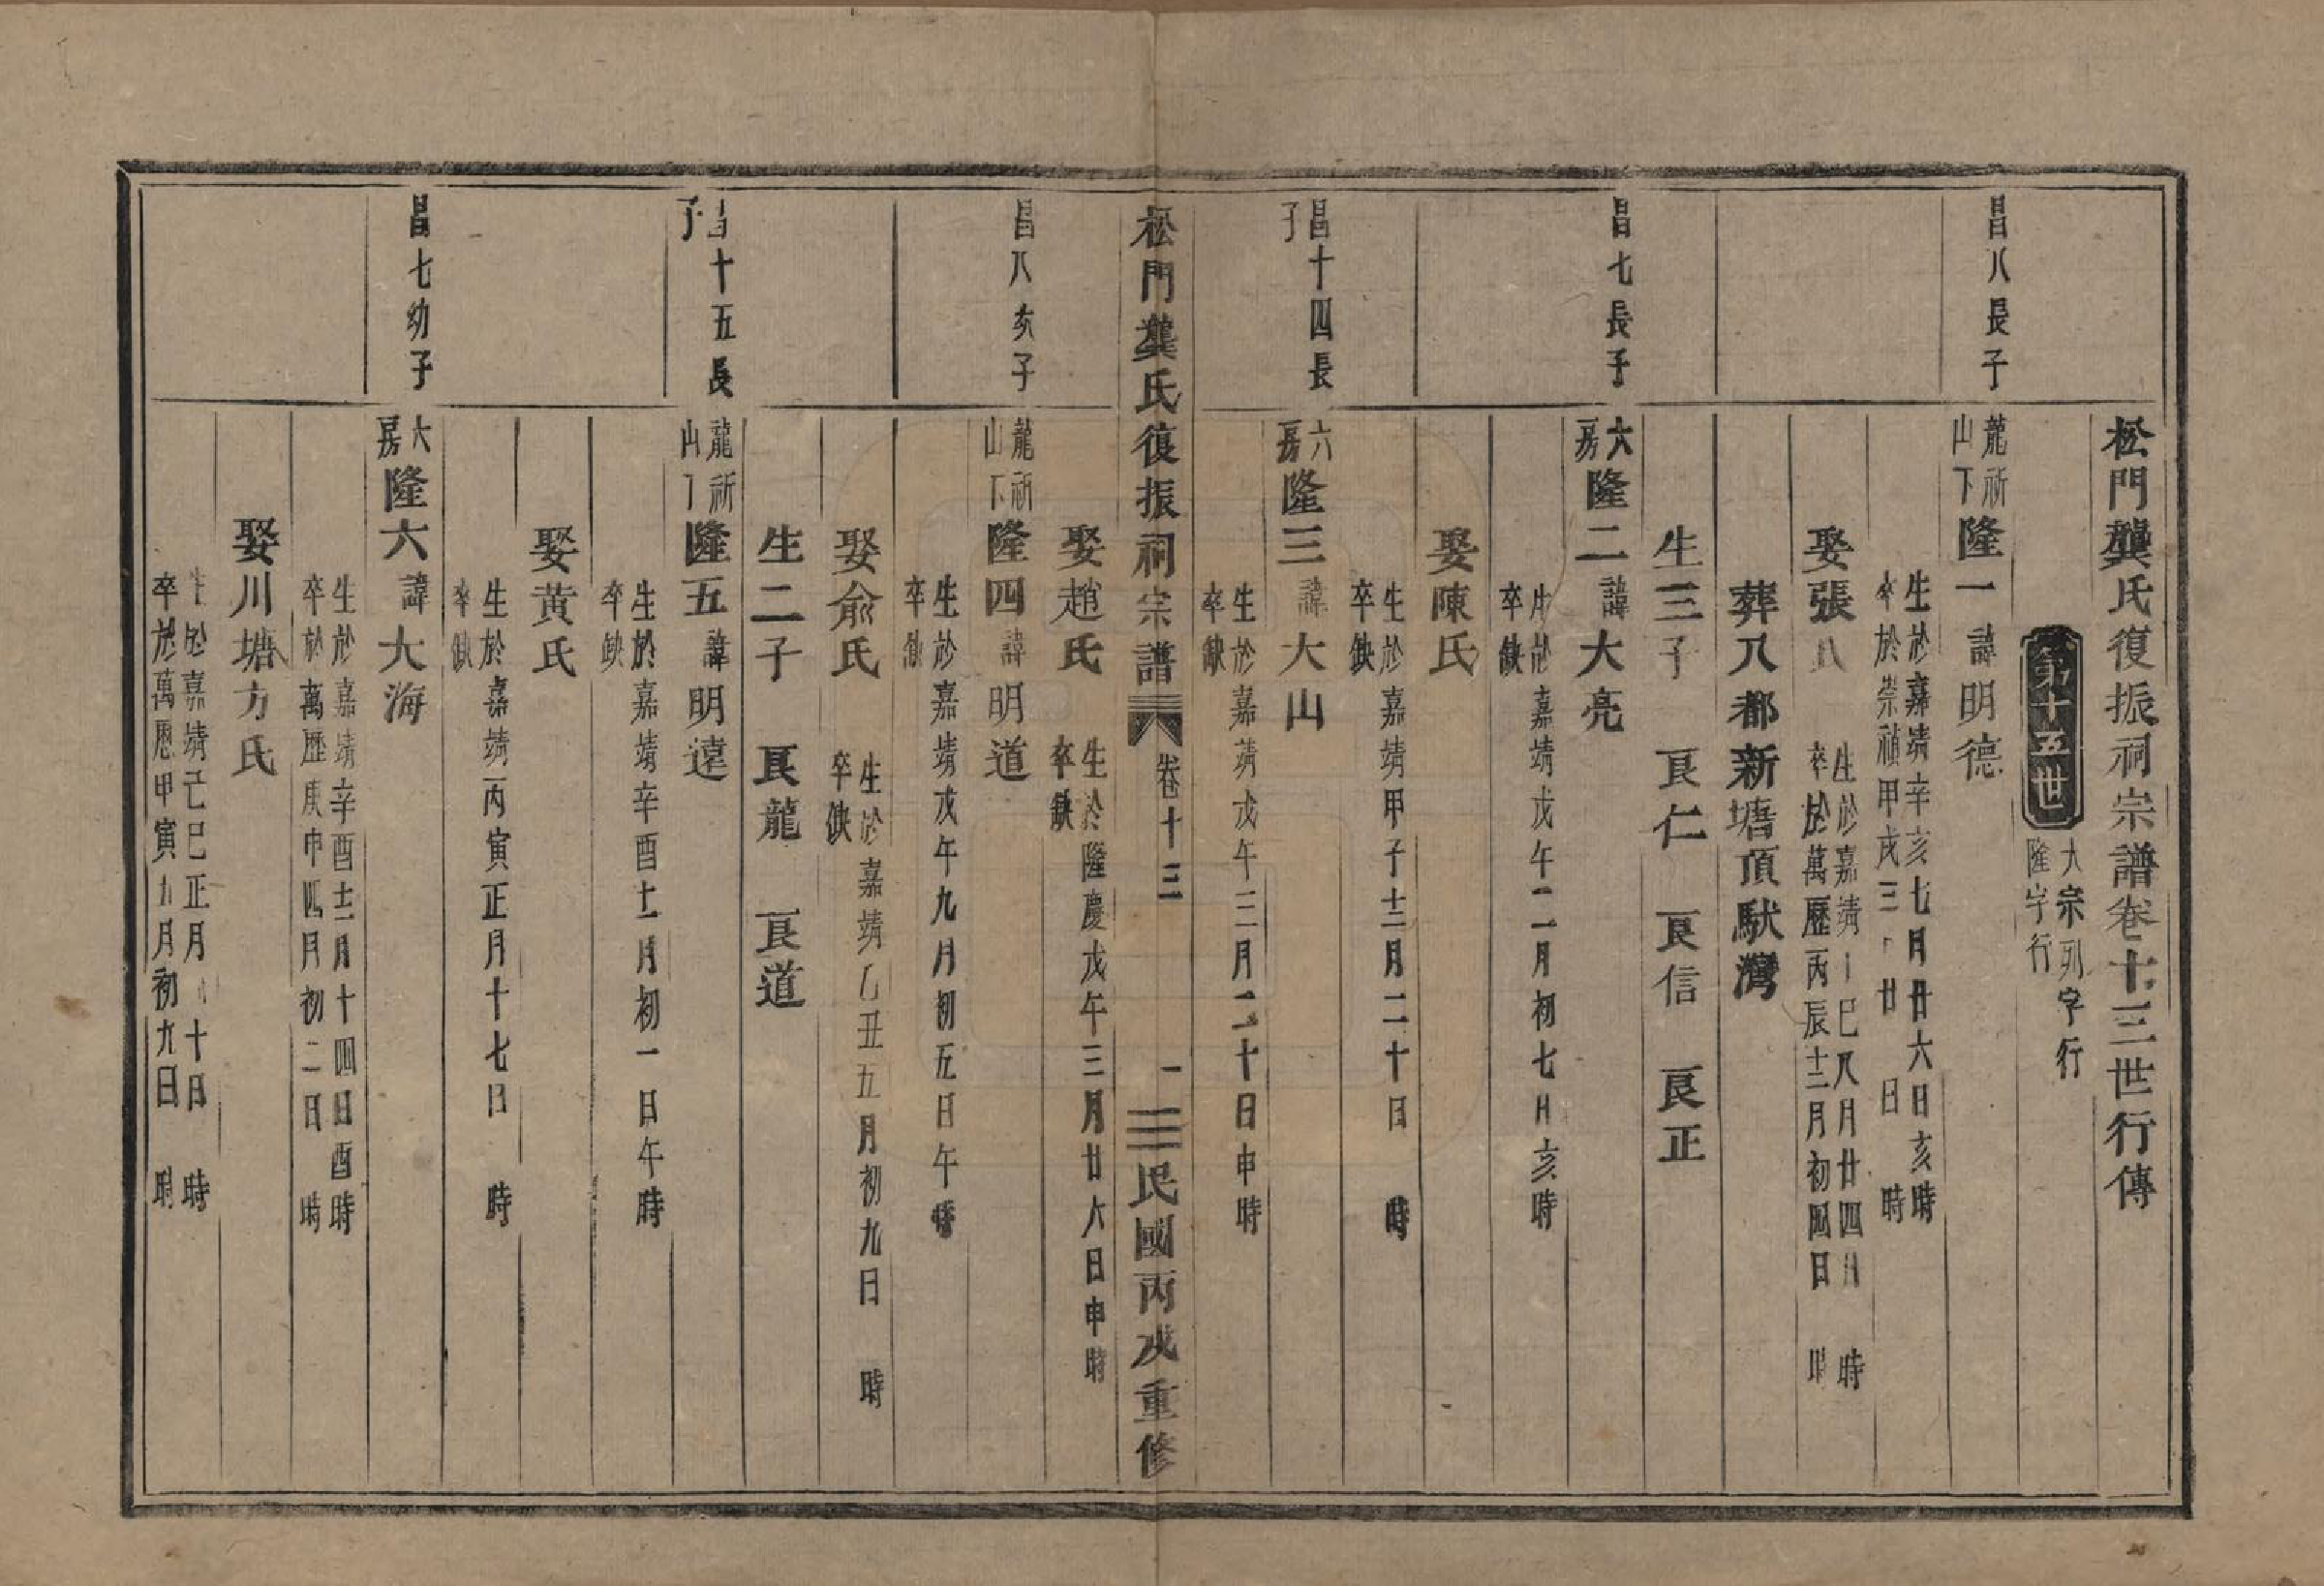 松門龔氏復振祠宗譜卷十三世行傳
第十五世
大宗列字行
隆字行
昌八長子
龍祈
山下
隆一諱明德
生於嘉靖辛亥七月廿六日亥時
卒於崇禎甲戌三月廿 日 時
娶張氏
生於嘉靖 巳八月廿四日 時
卒於萬歷丙辰十二月初四日 時
葬八都新塘頂馱灣
生三子 良仁 良信 良正
昌七長子
六房
隆二諱大亮
生於嘉靖戊午二月初七日亥時
卒缺
娶陳氏
生於嘉靖甲子十二月二十日 時
卒缺
昌十四長子
六房
隆三諱大山
生於嘉靖戊午三月二十日申時
卒缺
松門龔氏復振祠宗譜 卷十三 一 民國丙戌重修
娶趙氏
生於隆慶戊午三月廿六日申時
卒缺
昌八次子
龍祈
山下
隆四諱明道
生於嘉靖戊午九月初五日午時
卒缺
娶俞氏
生於嘉靖乙丑五月初九日 時
卒缺
生二子 良龍 良道
昌十五長子
龍祈
山下
隆五諱明遠
生於嘉靖辛酉十一月初一日午時
卒缺
娶黃氏
生於嘉靖丙寅正月十七日 時
卒缺
昌七幼子
大房
隆六諱大海
生於嘉靖辛酉十二月十四日酉時
卒於萬歷庚申四月初二日 時
娶川塘方氏
生於嘉靖己巳正月 十日 時
卒於萬歷甲寅九月初九日 時